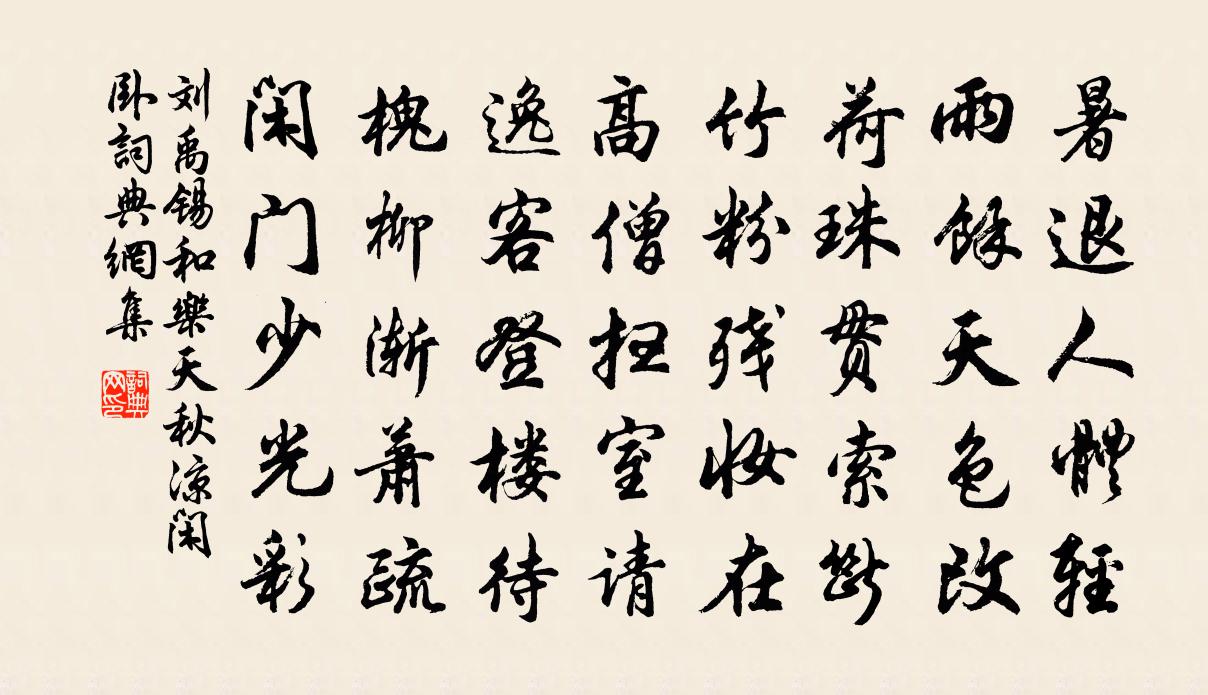 暑退人體輕
雨餘天色改
荷珠贯索斷
竹粉残妝在
高僧扫室请
逸客登楼待
槐柳渐萧疏
闲门少光彩
刘禹锡和樂天秋凉闲
卧詞典網集
詞典
网印